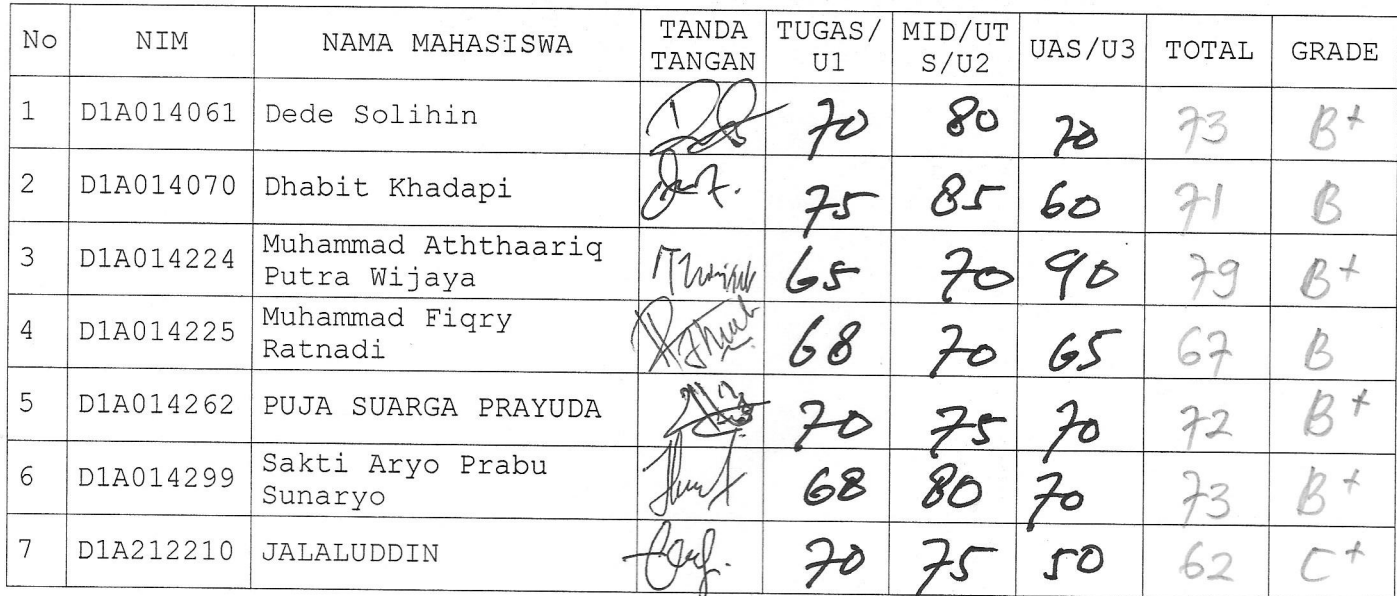 No NIM NAMA MAHASISWA TANDA TANGAN TUGAS/U1 MID/UTS/U2 UAS/U3 TOTAL GRADE
1 D1A014061 Dede Solihin 70 80 70 73 B+
2 D1A014070 Dhabit Khadapi 75 85 60 71 B
3 D1A014224 Muhammad Aththaariq
Putra Wijaya 65 70 90 79 B+
4 D1A014225 Muhammad Fiqry
Ratnadi 68 70 65 67 B
5 D1A014262 PUJA SUARGA PRAYUDA 70 75 70 72 B+
6 D1A014299 Sakti Aryo Prabu
Sunaryo 68 80 70 73 B+
7 D1A212210 JALALUDDIN 70 75 50 62 C+